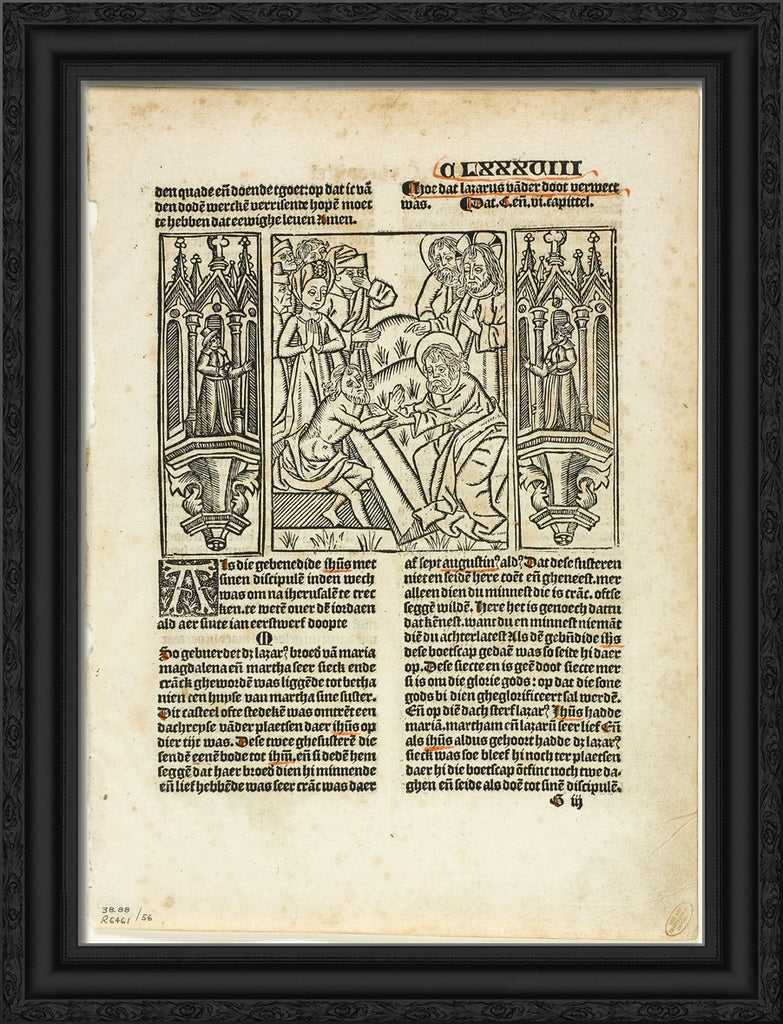 C LXXXVIII
den quade en̄ doende tgoet: op dat ic vā
den dodē werckē verrisente hopē moet
te hebben dat eewighe leuen Amen.
¶hoe dat lazarus vāder doot verwect
was. ¶Dat .C. en̄. vi. capittel.
AIs die gebenedide ihūs met
sinen discipulē inden wech
was om na iherusalē te trec
ken. te wetē ouer dē iordaen
ald aer sinte ian eerstwerf doopte
So gebuerdet dz lazar? broed vā maria
magdalena en̄ martha seer sieck ende
crāck ghewordē was liggēde tot betha
nien ten huyse van martha sine suster.
Dit casteel ofte stedekē was omtrēt een
dachreyse vāder plaetsen daer ihūs op
dier tijt was. Dese twee ghesusterē die
sendē eenē bode tot ihm̄, en̄ si dedē hem
seggē dat haer broed dien hi minnende
en̄ lief hebbēde was seer crāc was daer
af seyt augustin? ald? Dat dese susteren
niet en seidē here coēt en̄ gheneest. mer
alleen dien du minnest die is crāc. oftse
seggē wildē. Here het is genoech dattu
dat kēnest. want du en minnest niemāt
diē du achterlatest Als dē gebn̄dide ihs
dese boetscap gedaē was so seide hi daer
op. Dese siecte en is geē doot siecte mer
si is om die glorie gods: op dat die sone
gods bi dien gheglorificeert sal werdē.
En̄ op diē dach sterf lazar? Ihūs hadde
mariā. martham en̄ lazarū seer lief En̄
als ihūs aldus gehoort hadde dz lazar?
sieck was soe bleef hi noch ter plaetsen
daer hi die boetscap ōtfinc noch twe da-
ghen en̄ seide als doē tot sinē discipulē.
G iij
38.88
R6461 /56